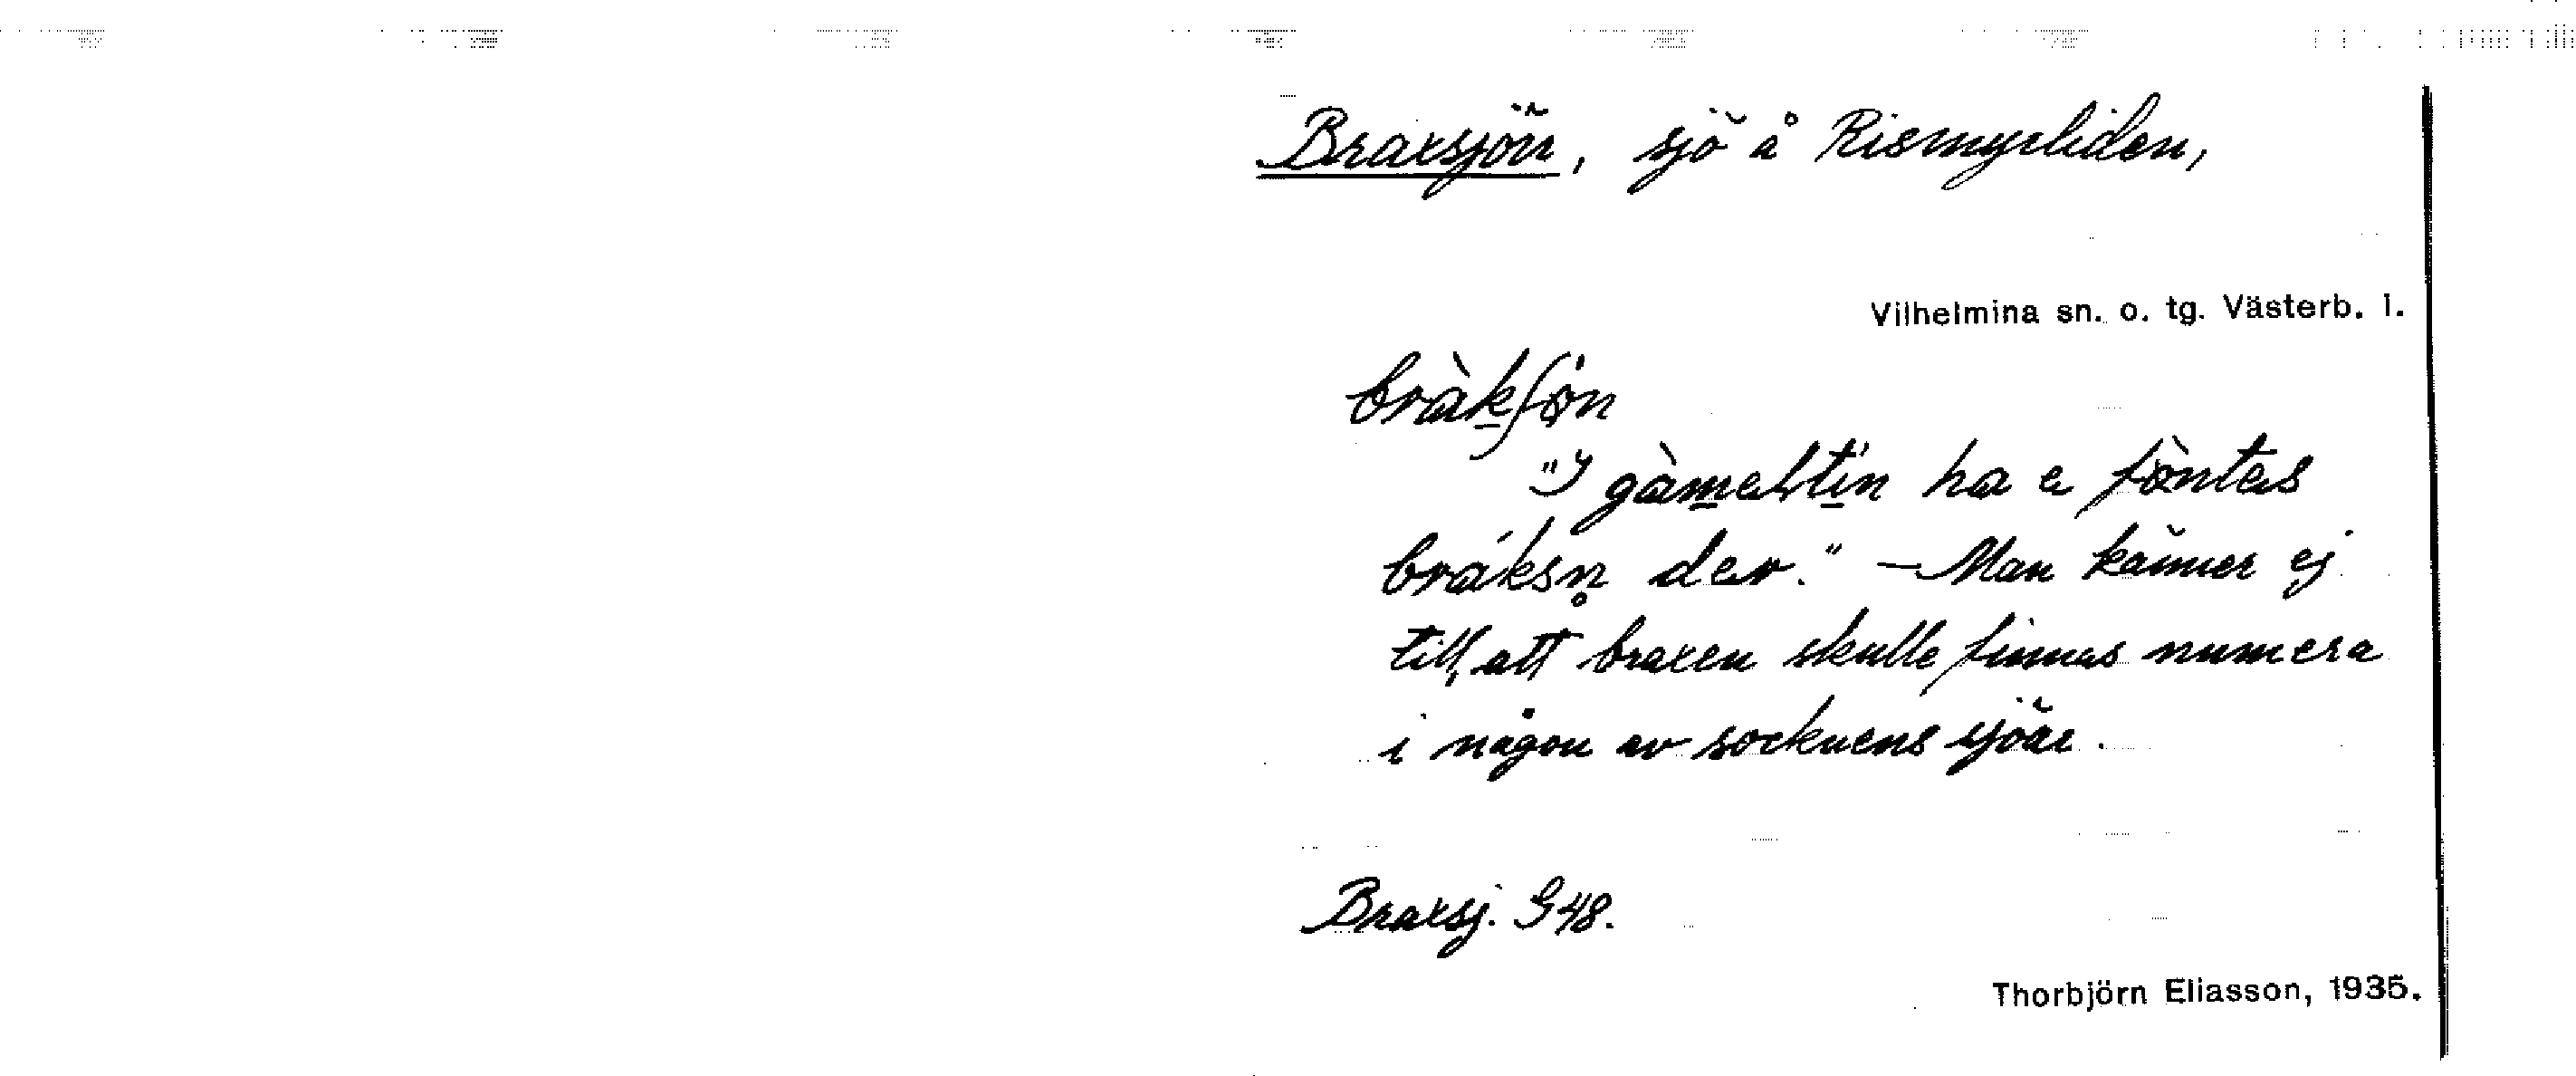 Braxsjön, sjö å Rismyrliden,
Vilhelmina sn. o. tg. Västerb. l.
bràkʃøn
"I gàmeltin ha e fòntes
bráksn̥ der." – Man känner ej
till, att braxen skulle finnas numera
i någon av socknens sjöar.
Braxsj. G 48.
Thorbjörn Eliasson, 1935.